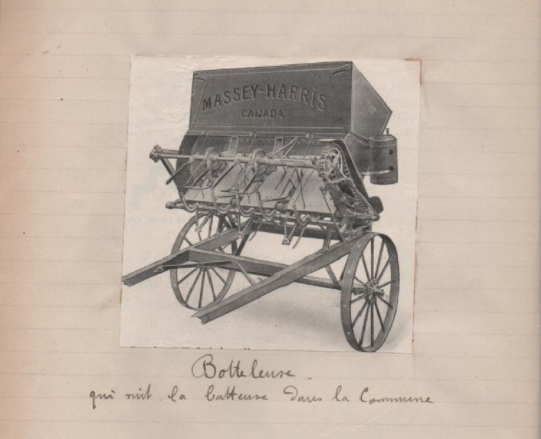 MASSEY-HARRIS
CANADA
Botteleuse
qui suit la batteuse dans la Commune